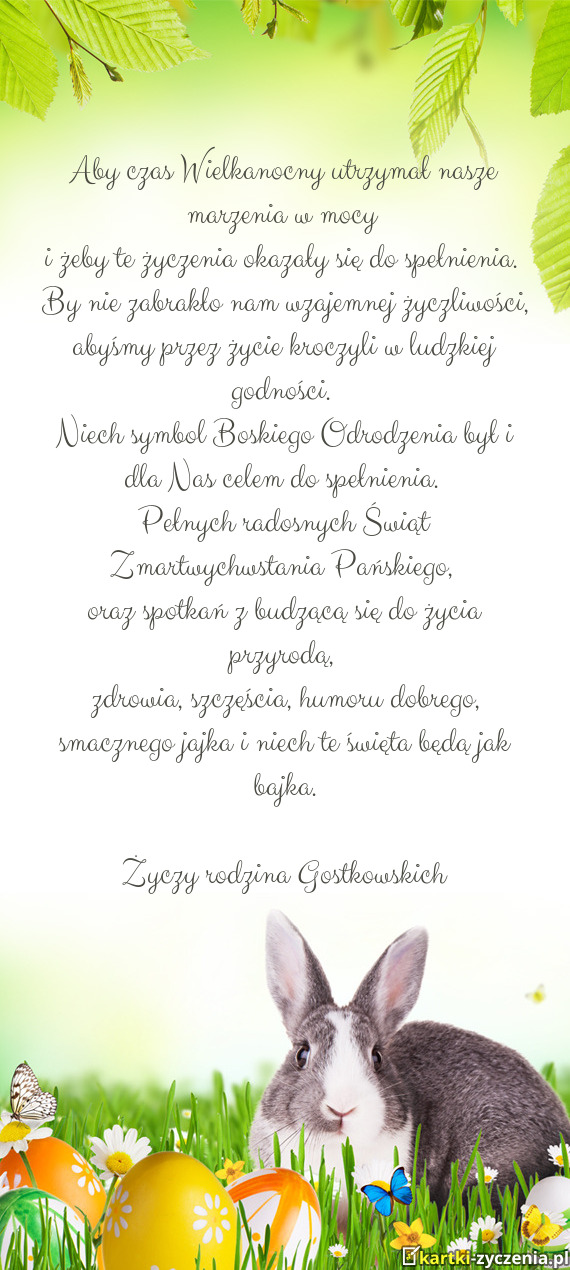 Aby czas Wielkanocny utrzymał nasze
marzenia w mocy
i żeby te życzenia okazały się do spełnienia.
By nie zabrakło nam wzajemnej życzliwości,
abyśmy przez życie kroczyli w ludzkiej
godności.
Niech symbol Boskiego Odrodzenia był i
dla Nas celem do spełnienia.
Pełnych radosnych Świąt
Zmartwychwstania Pańskiego,
oraz spotkań z budzącą się do życia
przyrodą,
zdrowia, szczęścia, humoru dobrego,
smacznego jajka i niech te święta będą jak
bajka.
Życzy rodzina Gostkowskich
kartki-zyczenia.pl